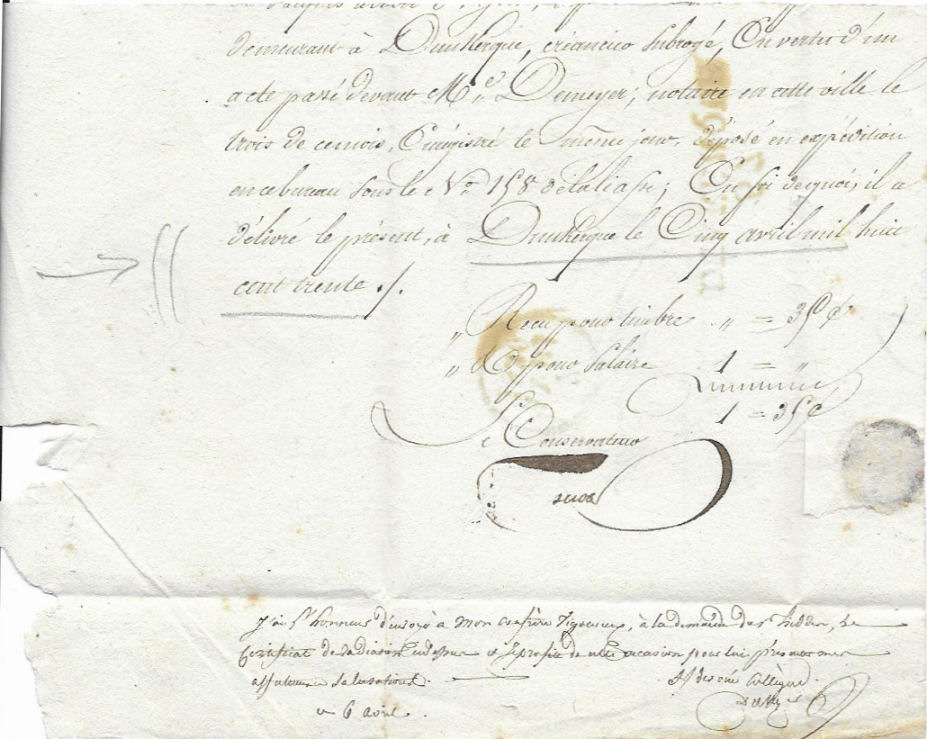 demeurant à Dunkerque, créancier subrogé, En vertu d'un
acte passé devant Me. Demeyer, notaire en cette ville le
trois de ce mois, Enregistré le même jour, déposé en expédition
en ce bureau sous le No. 158 de la liasse; En foi de quoi, il a
délivré le présent, à Dunkerque le Cinq avril mil huit
cent trente ./.
„ Reçu pour timbre „ = 35 c
„ D pour Salaire 1 = „
1 = 35 c
Le Conservateur
J'ai l'honneur d'envoyer à mon confrère, à la demande du Sr, le
Certificat de radiation et je profite de cette occasion pour lui présenter mes
affectueuses salutations.
Collègue
ce 6 avril.